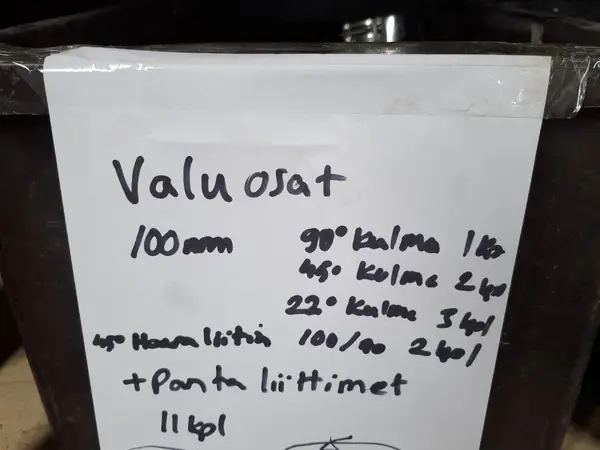 Valu osat
100mm 90° kulma 1 kpl
45° kulma 2 kpl
22° kulma 3 kpl
45° Haara liitin 100/90 2 kpl
+ Panta liittimet
11 kpl